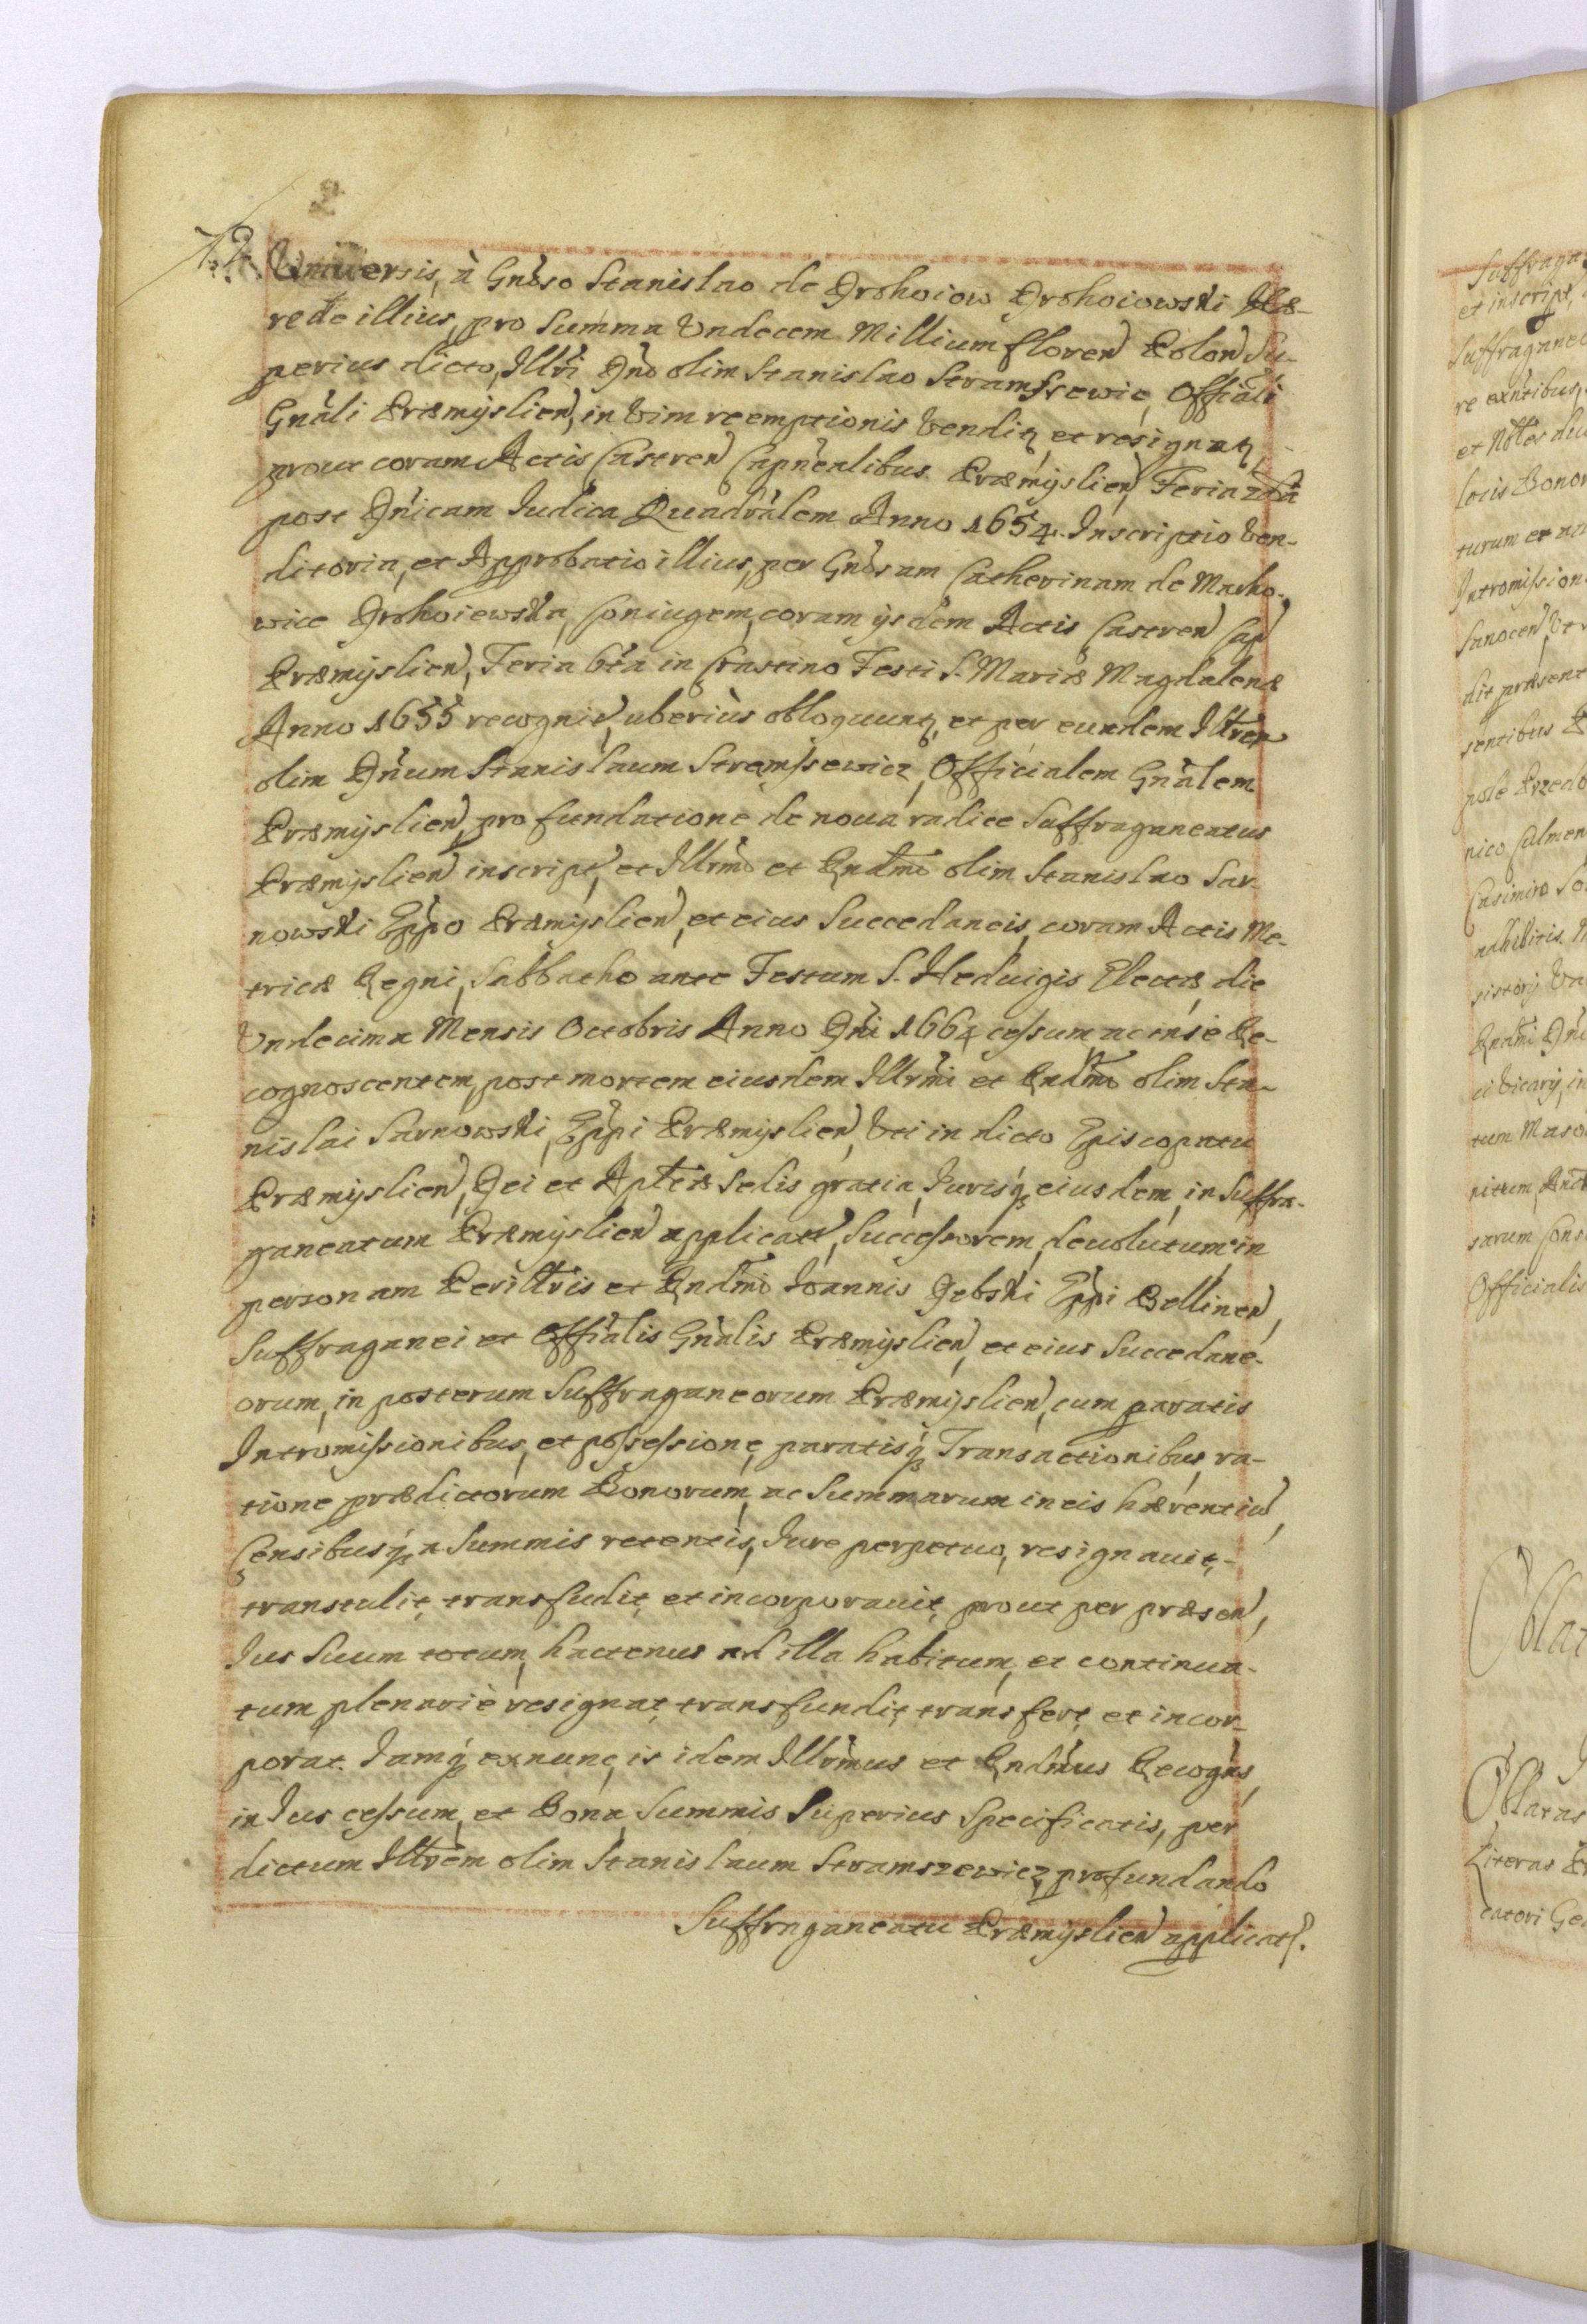 72
Uniuersis, à Gnoso Stanislao de Drohoiow Drohoiowski Hæ-
rede illius, pro Summa Vndecem Millium floren Polon Su-
perius dicto, Illri Dno olim Stanislao Stramszewic, Offiali
Gnali Præmyslien, in Vim reemptionis Vendit, et resignat,
prout coram Actis Castren Capnealibus Præmyslien, Feria 2da
post Dnicam Iudica Quadralem Anno 1654. Inscriptio Ven-
ditoria, et Approbatio illius, per Gnosam Catherinam de Macho-
wice Drohoiewska, Coniugem, coram ijsdem Actis Castren Cap
Præmyslien, Feria 6ta in Crastino Festi S. Mariæ Magdalenæ
Anno 1655 recognit, uberiùs obloquunt, et per eundem Illrem
olim Dnum Stanislaum Stramszewicz, Officialem Gnalem
Præmyslien, pro fundatione de noua radice Suffraganeatus
Præmyslien inscript, et Illrmo et Rndmo olim Stanislao Sar-
nowski Eppo Præmyslien, et eius Succedaneis, coram Actis Me-
tricæ Regni, Sabbatho ante Festum S. Heduigis Electæ, die
Vndecima Mensis Octobris Anno Dni 1664 cessum, ac in se Re-
cognoscentem, post mortem eiusdem Illrmi et Rndmi olim Sta-
nislai Sarnowski, Eppi Præmyslien, Vti in dicto Episcopatu
Præmyslien, Dei et Aplicæ Sedis gratia, Jurisq eiusdem, in Suffra-
ganeatum Præmyslien applicati, Successorem, deuolutum, in
personam Perillris et Rndmi Ioannis Dębski Eppi Bellinen,
Suffraganei et Offialis Gnalis Præmyslien, et eius Succedane-
orum, in posterum Suffraganeorum Præmyslien, cum paratis
Intromissionibus, et possessione, paratisq Transactionibus, ra-
tione prædictorum Bonorum, ac Summarum in eis hærentiu,
Censibusq, a Summis retentis, Iure perpetuo, resignauit,-
transtulit, transfudit, et incorporauit, prout per præsen,
Ius Suum totum, hactenus ad illa habitum, et continua-
tum plenariè resignat, transfundit, transfert, et incor-
porat. Iamq exnunc, is idem Illrmus et Rndmus Recogns,
in Ius cessum, et Bona, Summis Superius Specificatis, per
dictum Illrem olim Stanislaum Stramszewicz, pro fundando
Suffraganeatu Præmyslien applicat.